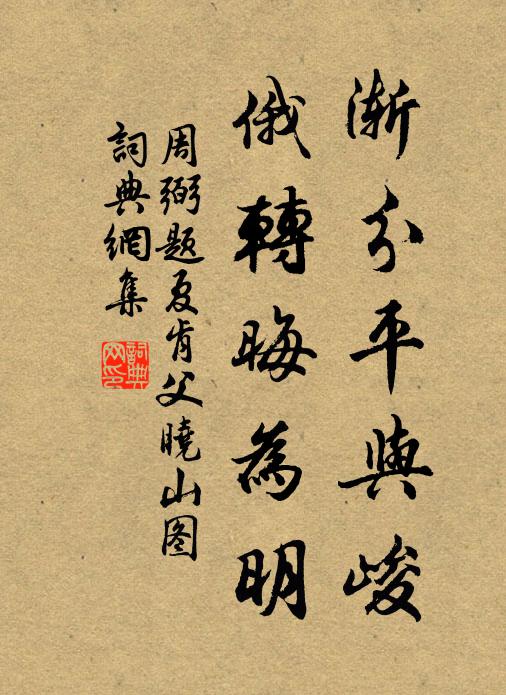 渐分平與峻
俄轉晦為明
周弼题夏肯父曉山图
詞典網集
詞典网印